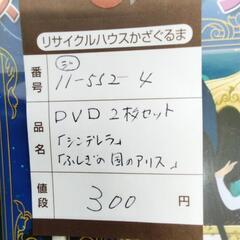 リサイクルハウスかざぐるま
番号 ミニ 11-552-4
品名 DVD 2枚セット
「シンデレラ」
「ふしぎの国のアリス」
値段 300 円